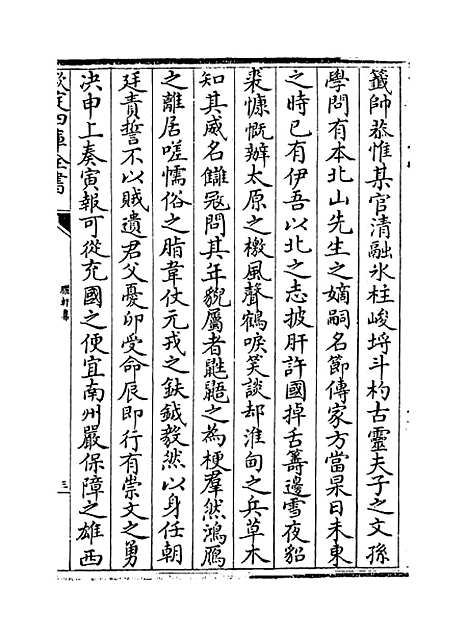 籤帥恭惟某官清融氷柱峻埒斗杓古靈夫子之文孫
學問有本北山先生之嫡嗣名節傳家方當杲日未東
之時已有伊吾以北之志披肝許國掉舌籌邊雪夜貂
裘慷慨辦太原之檄風聲鶴唳笑談却淮甸之兵草木
知其威名讎冦問其年貌屬者鼪鼯之為梗羣然鴻鴈
之離居嗟懦俗之脂韋仗元戎之鈇鉞毅然以身任朝
廷責誓不以賊遺君父憂卯受命辰即行有崇文之勇
決申上奏寅報可從充國之便宜南州嚴保障之雄西
欽定四庫全書
臞軒集
三